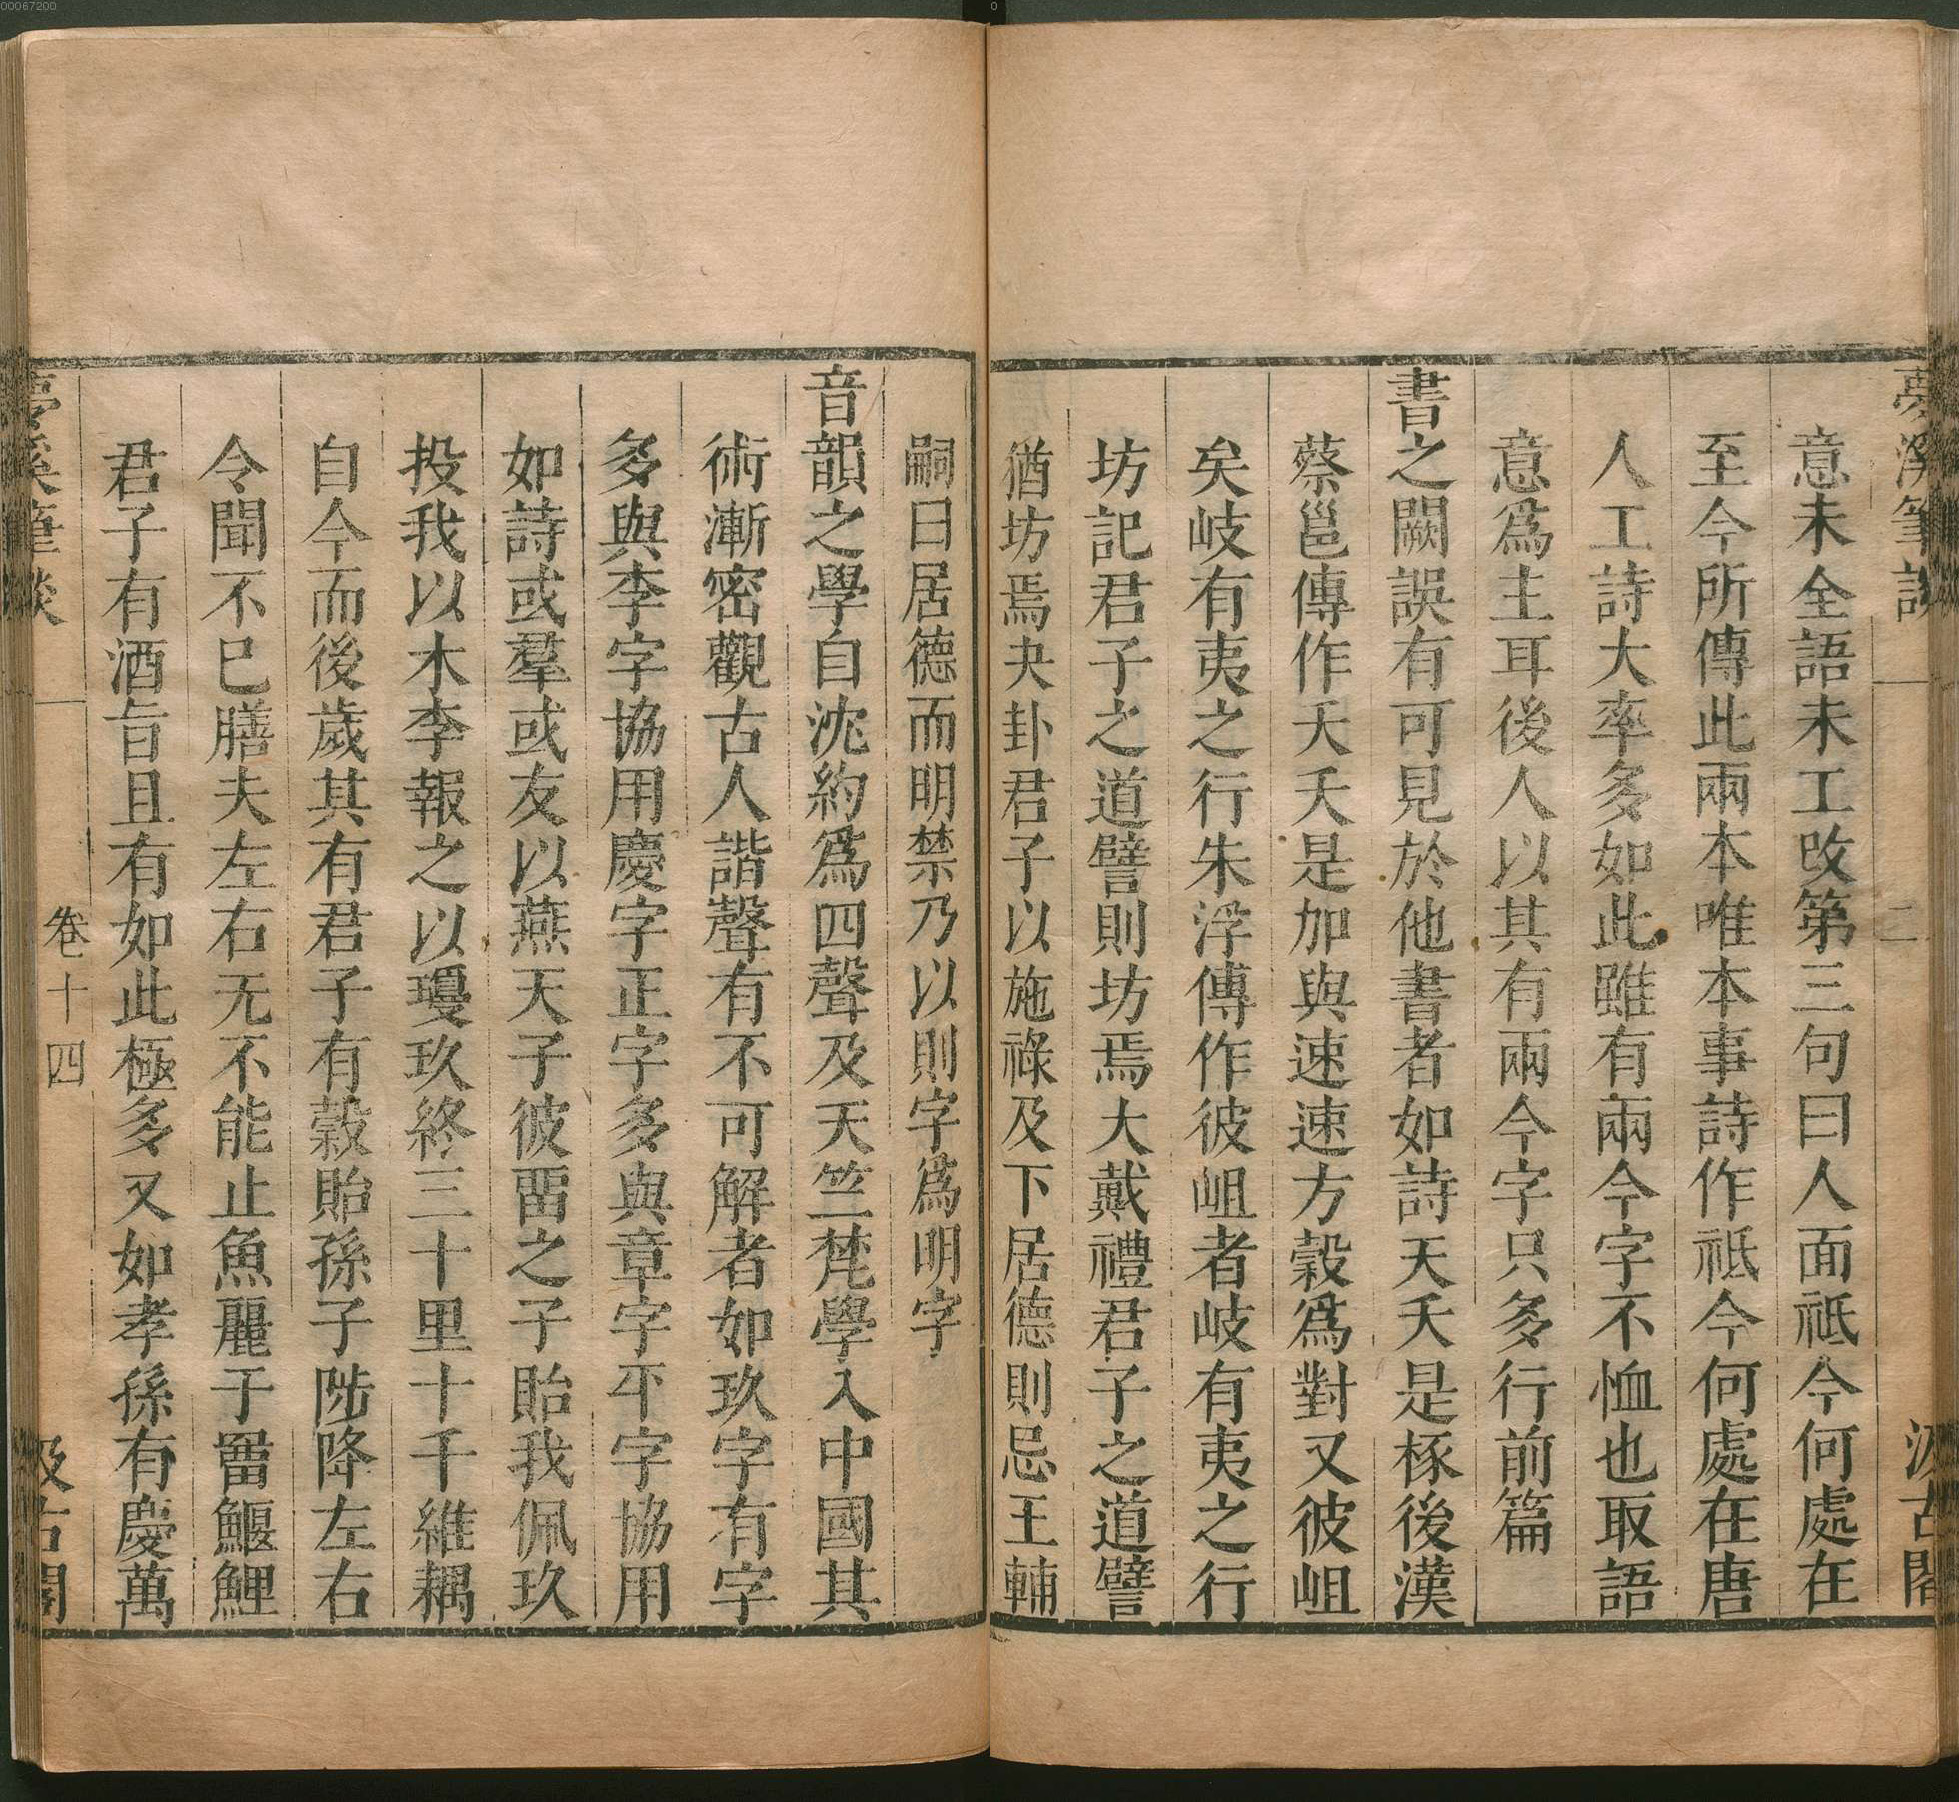 00067200
0
夢溪筆談 二 汲古閣
意未全語未工改第三句曰人面祗今何處在
至今所傳此兩本唯本事詩作祗今何處在唐
人工詩大率多如此雖有兩今字不恤也取語
意爲主耳後人以其有兩今字只多行前篇
書之闕誤有可見於他書者如詩天夭是椓後漢
蔡邕傳作夭夭是加與速速方穀爲對又彼岨
矣岐有夷之行朱浮傳作彼岨者岐有夷之行
坊記君子之道譬則坊焉大戴禮君子之道譬
猶坊焉夬卦君子以施祿及下居德則忌王輔
嗣曰居德而明禁乃以則字爲明字
音韻之學自沈約爲四聲及天竺梵學入中國其
術漸密觀古人諧聲有不可解者如玖字有字
多與李字協用慶字正字多與章字平字協用
如詩或羣或友以燕天子彼畱之子貽我佩玖
投我以木李報之以瓊玖終三十里十千維耦
自今而後歲其有君子有穀貽孫子陟降左右
令聞不已膳夫左右无不能止魚麗于罶鰋鯉
君子有酒旨且有如此極多又如孝孫有慶萬
夢溪筆談 卷十四 汲古閣